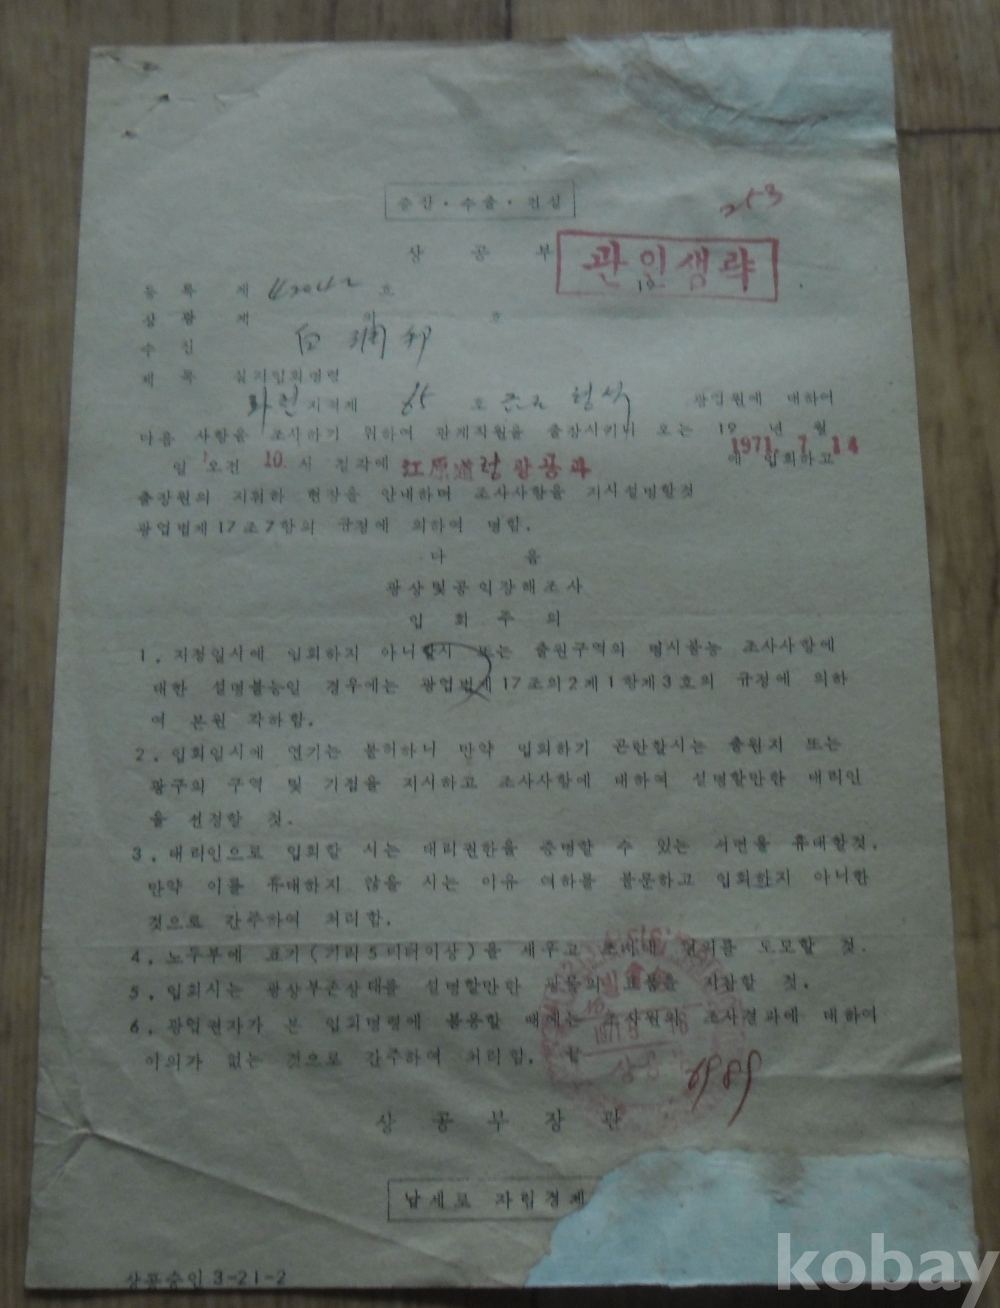 증산·수출·건설
253
상 공 부
관인생략
등 록 제 42042 호
상 광 제 의 호
수 신 白 潤
제 목 실지입회명령
화천 지적제 65 호 형석 광업원에 대하여
다음 사항을 조사하기 위하여 관계직원을 출장시키니 오는 19 년 월
1971. 7. 14
일 오전 10 시 정각에 江原道청 광공과 에 입회하고
출장원의 지휘하 현장을 안내하며 조사사항을 지시설명할것
광업법제17조7항의 규정에 의하여 명함.
다 음
광상및공익장해조사
입 회 주 의
1. 지정일시에 입회하지 아니할시 또는 출원구역의 명시불능 조사사항에
대한 설명불능일 경우에는 광업법제17조의2제1항제3호의 규정에 의하
여 본원 각하함.
2. 입회일시에 연기는 불허하니 만약 입회하기 곤란할시는 출원지 또는
광구의 구역 및 기점을 지시하고 조사사항에 대하여 설명할만한 대리인
을 선정할 것.
3. 대리인으로 입회할 시는 대리권한을 증명할 수 있는 서면을 휴대할것.
만약 이를 휴대하지 않을 시는 이유 여하를 불문하고 입회한지 아니한
것으로 간주하여 처리함.
4. 노두부에 표기(거리5미터이상)을 세우고 조사에 편의를 도모할 것.
5. 입회시는 광상부존상태를 설명할만한 광물의 표품을 지참할 것.
6. 광업권자가 본 입회명령에 불응할 때에는 조사원의 조사결과에 대하여
이의가 없는 것으로 간주하여 처리함.
상공
6989
상 공 부 장 관
납세로 자립경제
상공승인 3-21-2
kobay